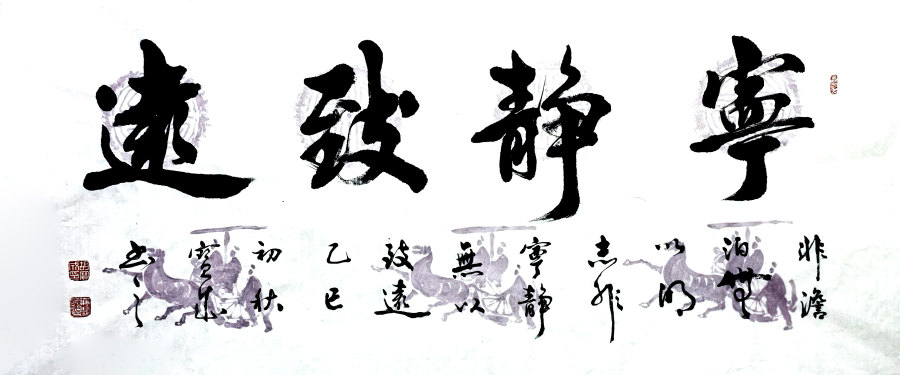 寧静致遠
非澹
泊無
以明
志非
寧静
無以
致遠
乙巳
初秋
寶
书之